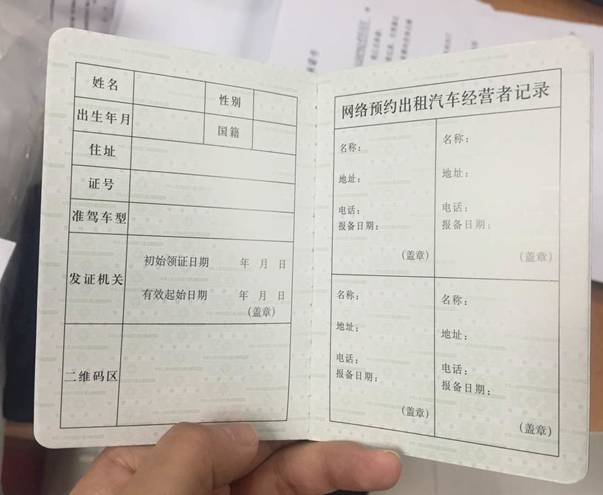 姓名
性别
出生年月
国籍
住址
证号
准驾车型
发证机关
初始领证日期 年 月 日
有效起始日期 年 月 日
(盖章)
二维码区
网络预约出租汽车经营者记录
名称：
地址：
电话：
报备日期：
(盖章)
名称：
地址：
电话：
报备日期：
(盖章)
名称：
地址：
电话：
报备日期：
(盖章)
名称：
地址：
电话：
报备日期：
(盖章)